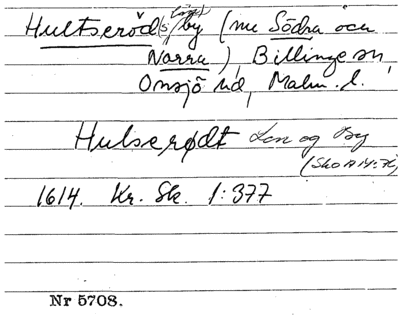 Hultseröd(s) by (nu Södra och
Norra), Billinge sn,
Onsjö hd, Malm. l.
Hulserødt Len og By
1614. Kr. Sk. 1:377
Nr 5708.